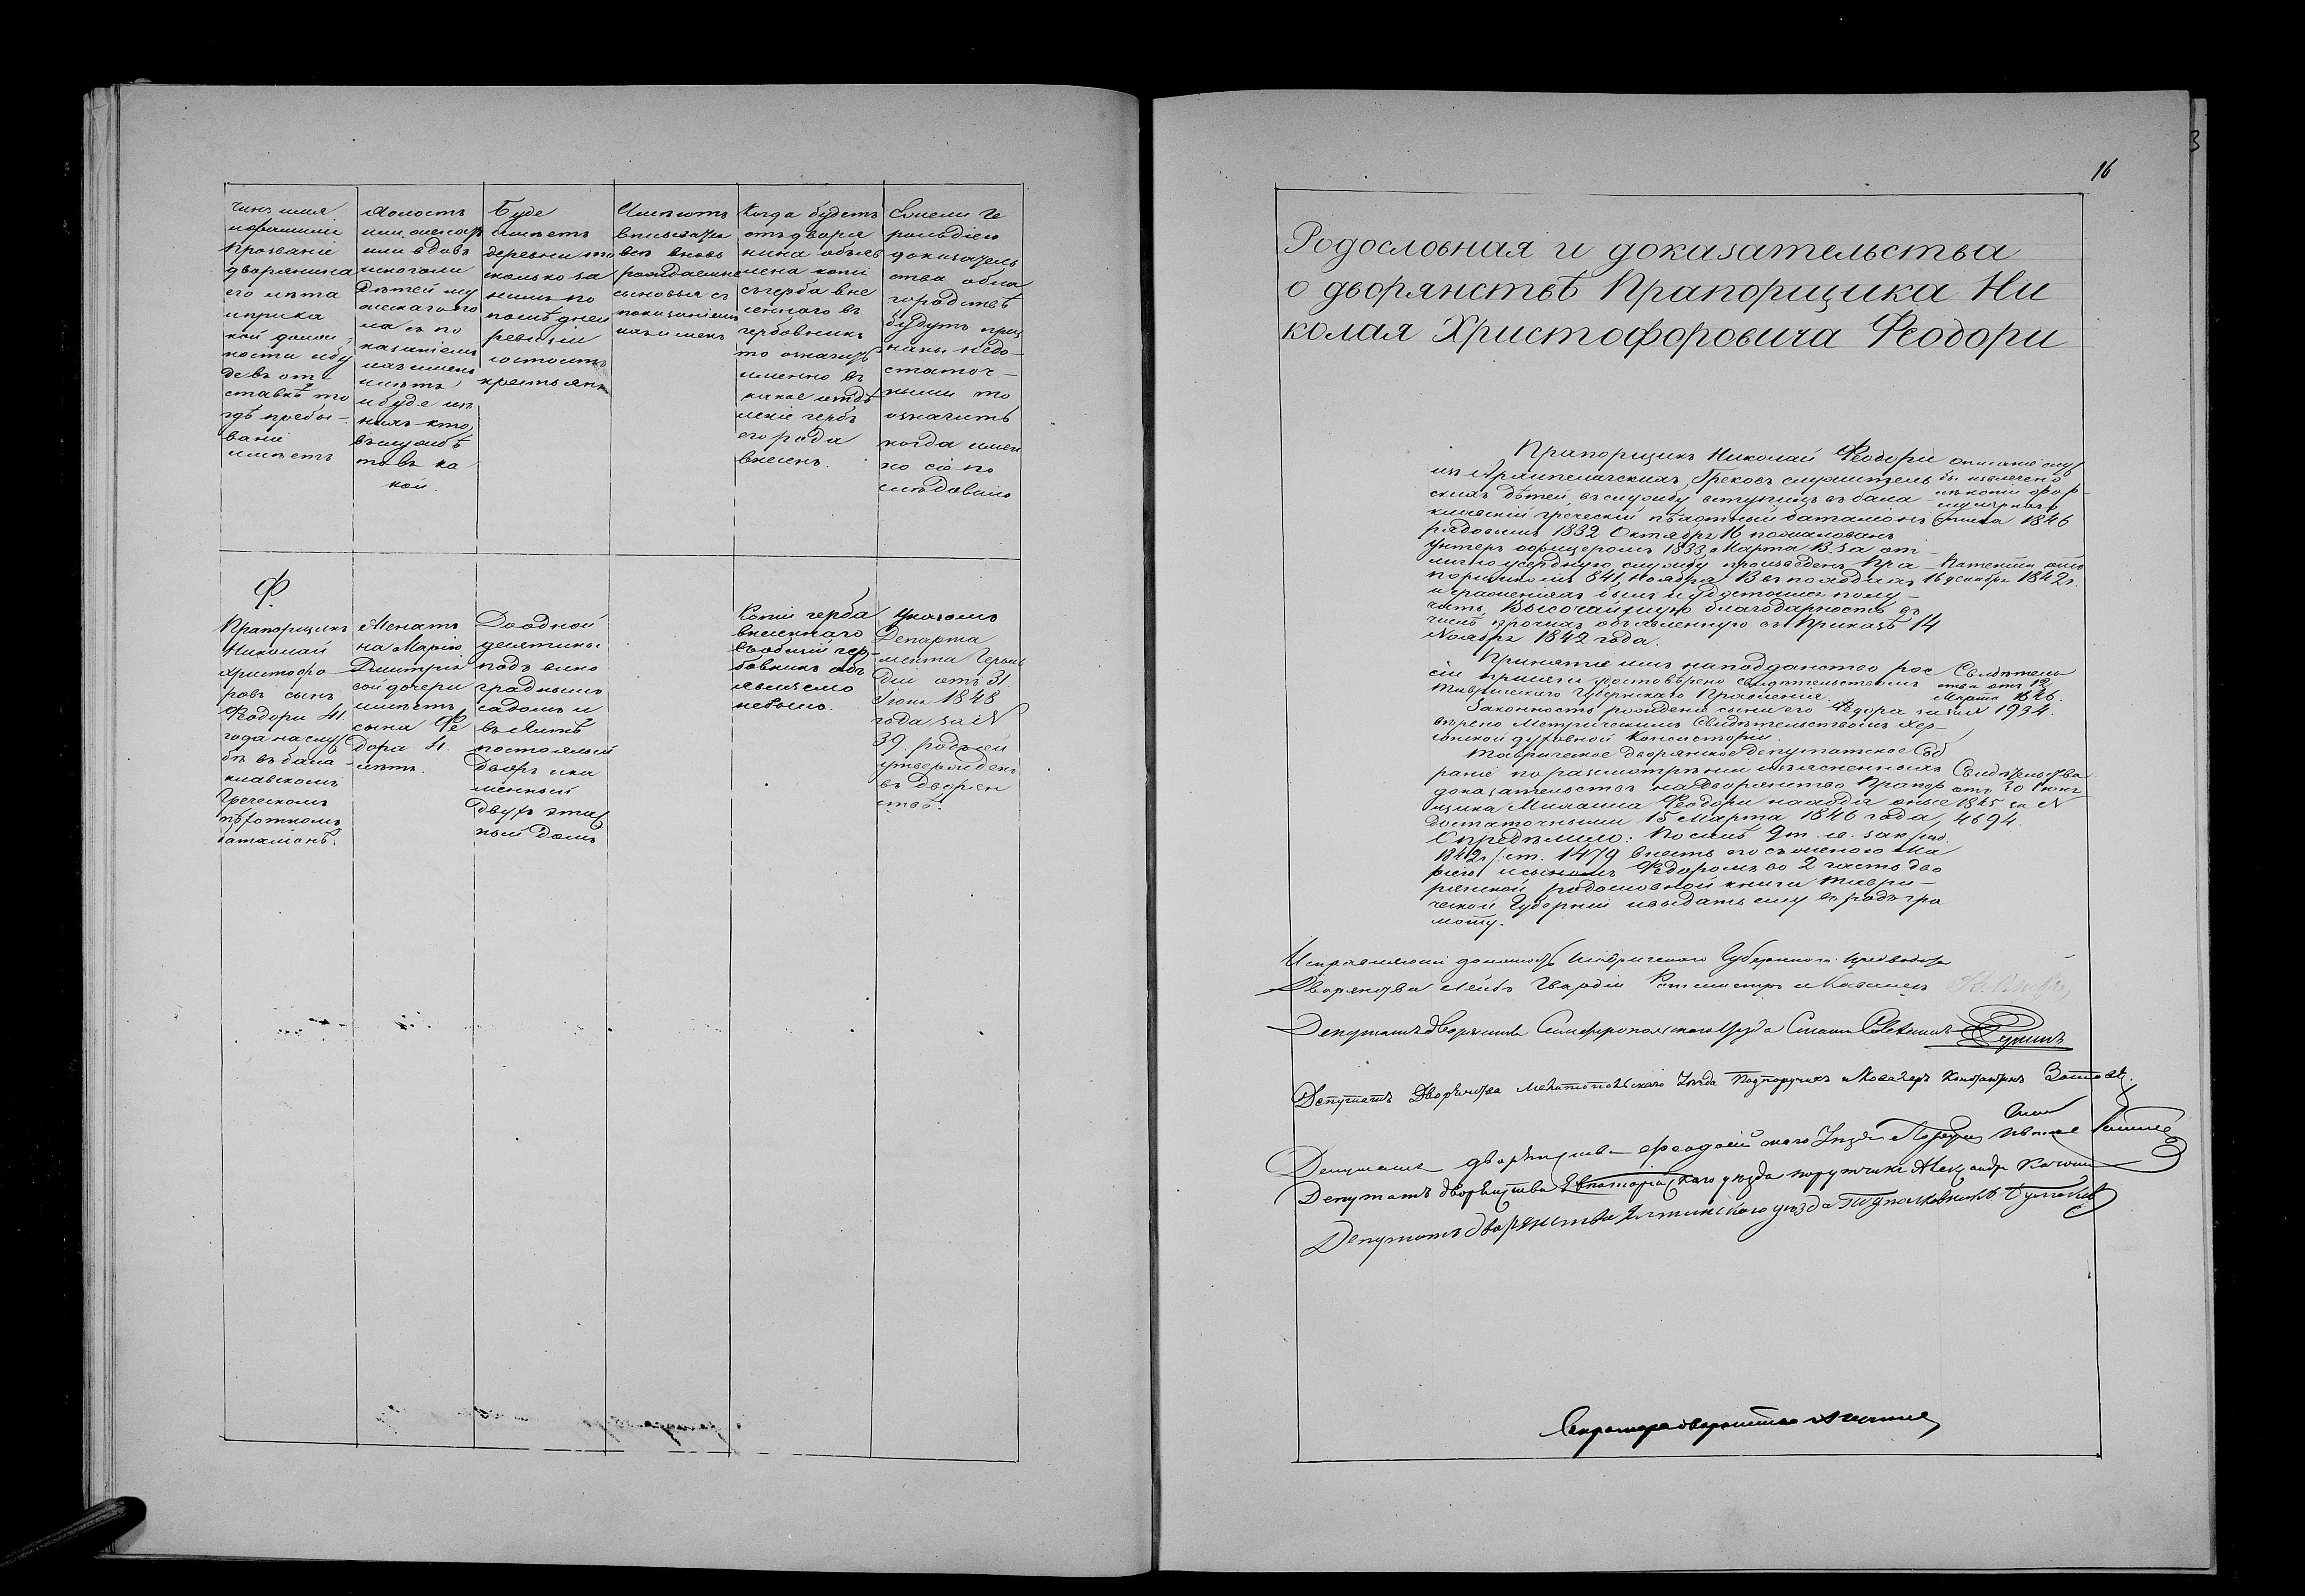 16
3
Чинъ имя
и фамилія
Прозваніе
дворянина
его лѣта
и при ка
кой долж
ности и бу
де въ от-
ставкѣ то
гдѣ пребы-
ваніе
имѣетъ
Холостъ
или женатъ
или вдовъ
и коголи
Дѣтей му
жескаго по
ла съ по
казаніемъ
ихъ именъ
имѣетъ
и буде изъ
нихъ кто
въ службѣ
то въ ка
кой.
Буде
имѣетъ
деревни то
сколько за
нимъ по
послѣдней
ревизіи
состоитъ
крестьянъ
Имѣютъ
вписыватъ
ся вновь
рождаемые
сыновья съ
показаніемъ
ихъ именъ
Когда будетъ
отъ дворя
нина объяв
лена копія
съ герба вне
сеннаго въ
гербовникъ
то означить
именно въ
какое отдѣ
леніе гербъ
его рода
внесенъ.
Если Ге
рольдіею
доказатель
ства о бла
городствѣ
будутъ приз
наны недо-
статоч-
ными то
означить
когда имен
но сіе по
слѣдовало
Ф.
Прапорщикъ
Николай
Христофо
ровъ сынъ
Феодори 41.
года на служ
бѣ въ бала
клавскомъ
Греческомъ
пѣхотномъ
баталіонѣ.
Женатъ
на Маріи
Дмитріе
вой дочери
имѣетъ
сына Фе
дора 11.
лѣтъ.
До одной
десятины
подъ вино
граднымъ
садомъ и
въ Ялтѣ
постоялый
Дворъ и ка
менный
Двухъ этаж
ный Домъ
Копіи герба
внесеннаго
въ общій гер-
бовникъ объ
являемо
небыло.
Указомъ
Департа
мента Героль
діи отъ 31.
Іюня 1848
года за №
39. родъ сей
утвержденъ
въ Дворян
ствѣ.
Родословная и доказательства
о дворянствѣ Прапорщика Ни
колая Христофоровича Феодори
Прапорщикъ Николай Феодори
изъ Архипелажскихъ Грековъ служитель
скихъ дѣтей, въ службу вступилъ въ бала
клавскій греческій пѣхотный баталіонъ
рядовымъ 1832 Октября 16 пожалованъ
унтеръ офицеромъ 1833 Марта 13. за от-
личноусердную службу произведенъ Пра-
порщикомъ 841 Ноября 13 въ походахъ
и сраженіяхъ былъ и удостоился полу-
чить Высочайшую благодарность въ
числѣ прочихъ объявленную въ Приказѣ 14
Ноября 1842 года.
Принятіе имъ на подданство рос
сіи присяги удостовѣрено свидѣтельствомъ
Таврическаго Губернскаго Правленія.
Законность рожденія сына его Федора за
вѣрено Метрическимъ Свидѣтельствомъ Хер-
сонской духовной Консисторіи.
Таврическое дворянское Депутатское Соб
раніе по разсмотрѣніи изъясненныхъ
доказательствъ на дворянство Прапор
щика Михаила Феодори находя оные
достаточными 15 Марта 1846 года,
Опредѣлило: По силѣ 9 т. св. зак. изд.
1842 г. ст. 1479 внесть его съ женою Ма
ріею и сыномъ Федоромъ во 2 часть дво
рянской родословной книги Таври-
ческой Губерніи и выдать ему въ родъ гра
моту.
описаніе служ
бы извлечено
изъ копіи фор-
мулярнаго
списка 1846
Патентъ отъ
16 декабря 1842 г.
Свидѣтель
ство отъ 12
Марта 1846.
за № 1934.
Свидѣтельства
отъ 30 Іюня
1845 за №
4694.
Исправляющій должность Таврическаго Губернскаго Предводителя
Дворянства Лейбъ Гвардіи Ротмистръ и Кавалеръ
Депутатъ дворянства Симферопольскаго Уѣзда
Депутатъ Дворянства Мелитопольскаго Уѣзда Подпоручикъ и Кавалеръ Константинъ
Депутатъ дворянства Феодосійскаго Уѣзда
Депутатъ дворянства Евпаторійскаго уѣзда поручикъ Александръ
Депутатъ дворянства Ялтинскаго уѣзда Подполковникъ
Секретарь дворянства